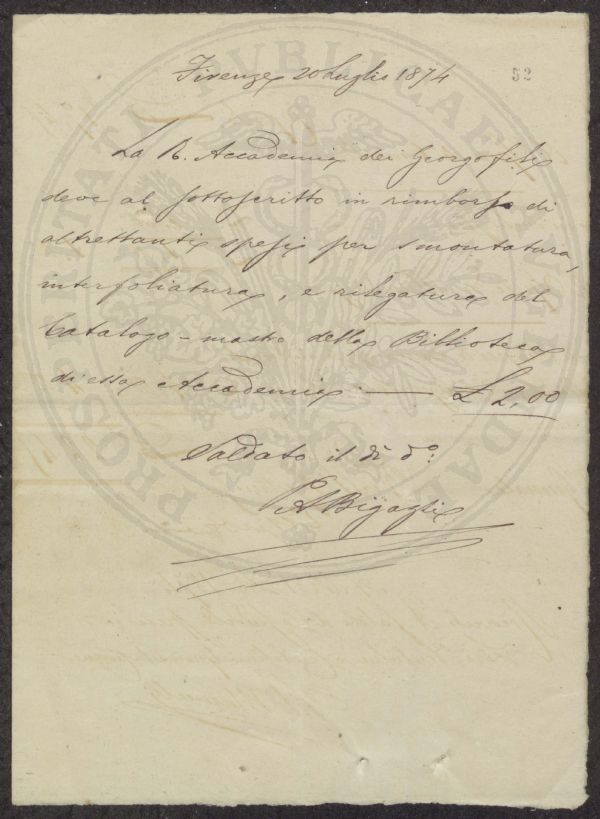 Firenze 20 Luglio 1874
52
La R. Accademia dei Georgofili
deve al sottoscritto in rimborso di
altrettanti spesi per smontatura,
interfoliatura, e rilegatura del
Catalogo-mastro della Biblioteca
di essa Accademia — £ 2,00
Saldato il dì do:
Bigagli
PROSPERITATI PVBLICAE AVGENDAE